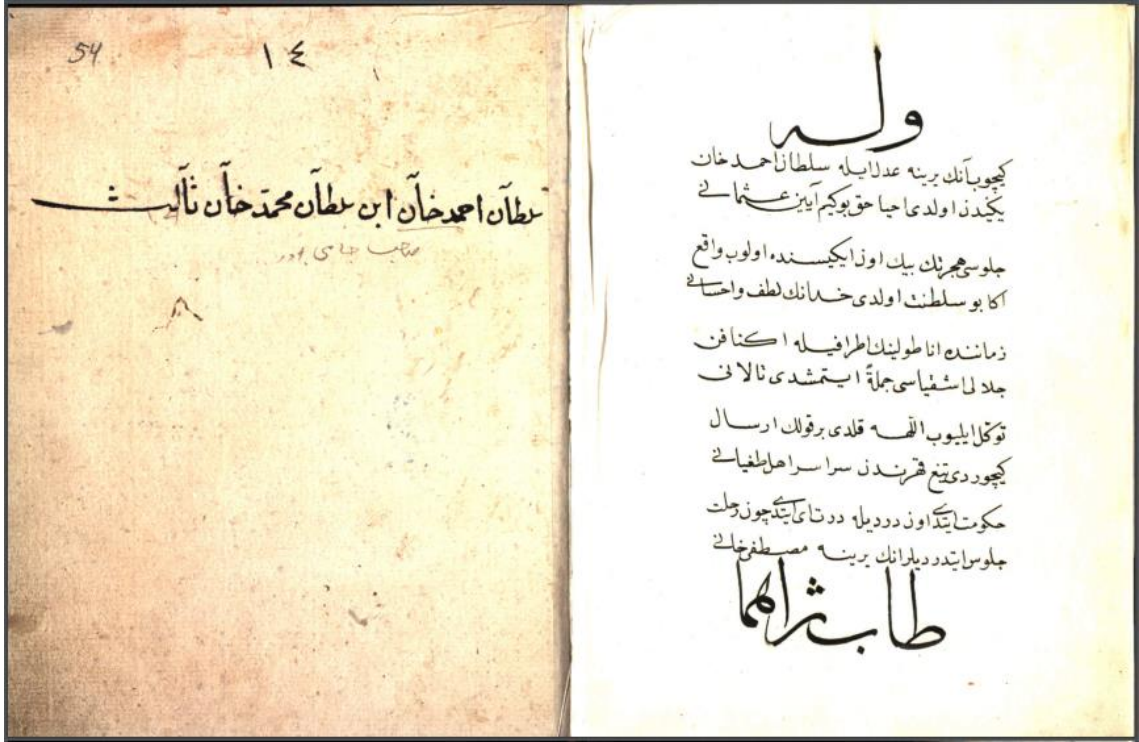 54
١٤
سلطان احمد خان ابن سلطان محمد خان ثالث
صاحب جامعی بودر
وله
كچوب آنك يرينه عدل ايله سلطان احمد خان
يكيدن اولدی احيا حق بوكيم آيين عثمانی
جلوسی هجرتك بيك اون ايكيسنده اولوب واقع
اكا بو سلطنت اولدی خدانك لطف و احسانی
زماننده اناطولينك اطرافيله اكنافن
جلالی اشقياسی جملةً ايتمشدی تالانی
توكل ايليوب اللهه قلدی بر قولك ارسال
كچوردی تيغ قهرندن سراسر اهل طغيانی
حكومت ايتدی اون درديله درت ای ايتدی چون رحلت
جلوس ايتدرديلر انك يرينه مصطفی خانی
طاب ثراهما